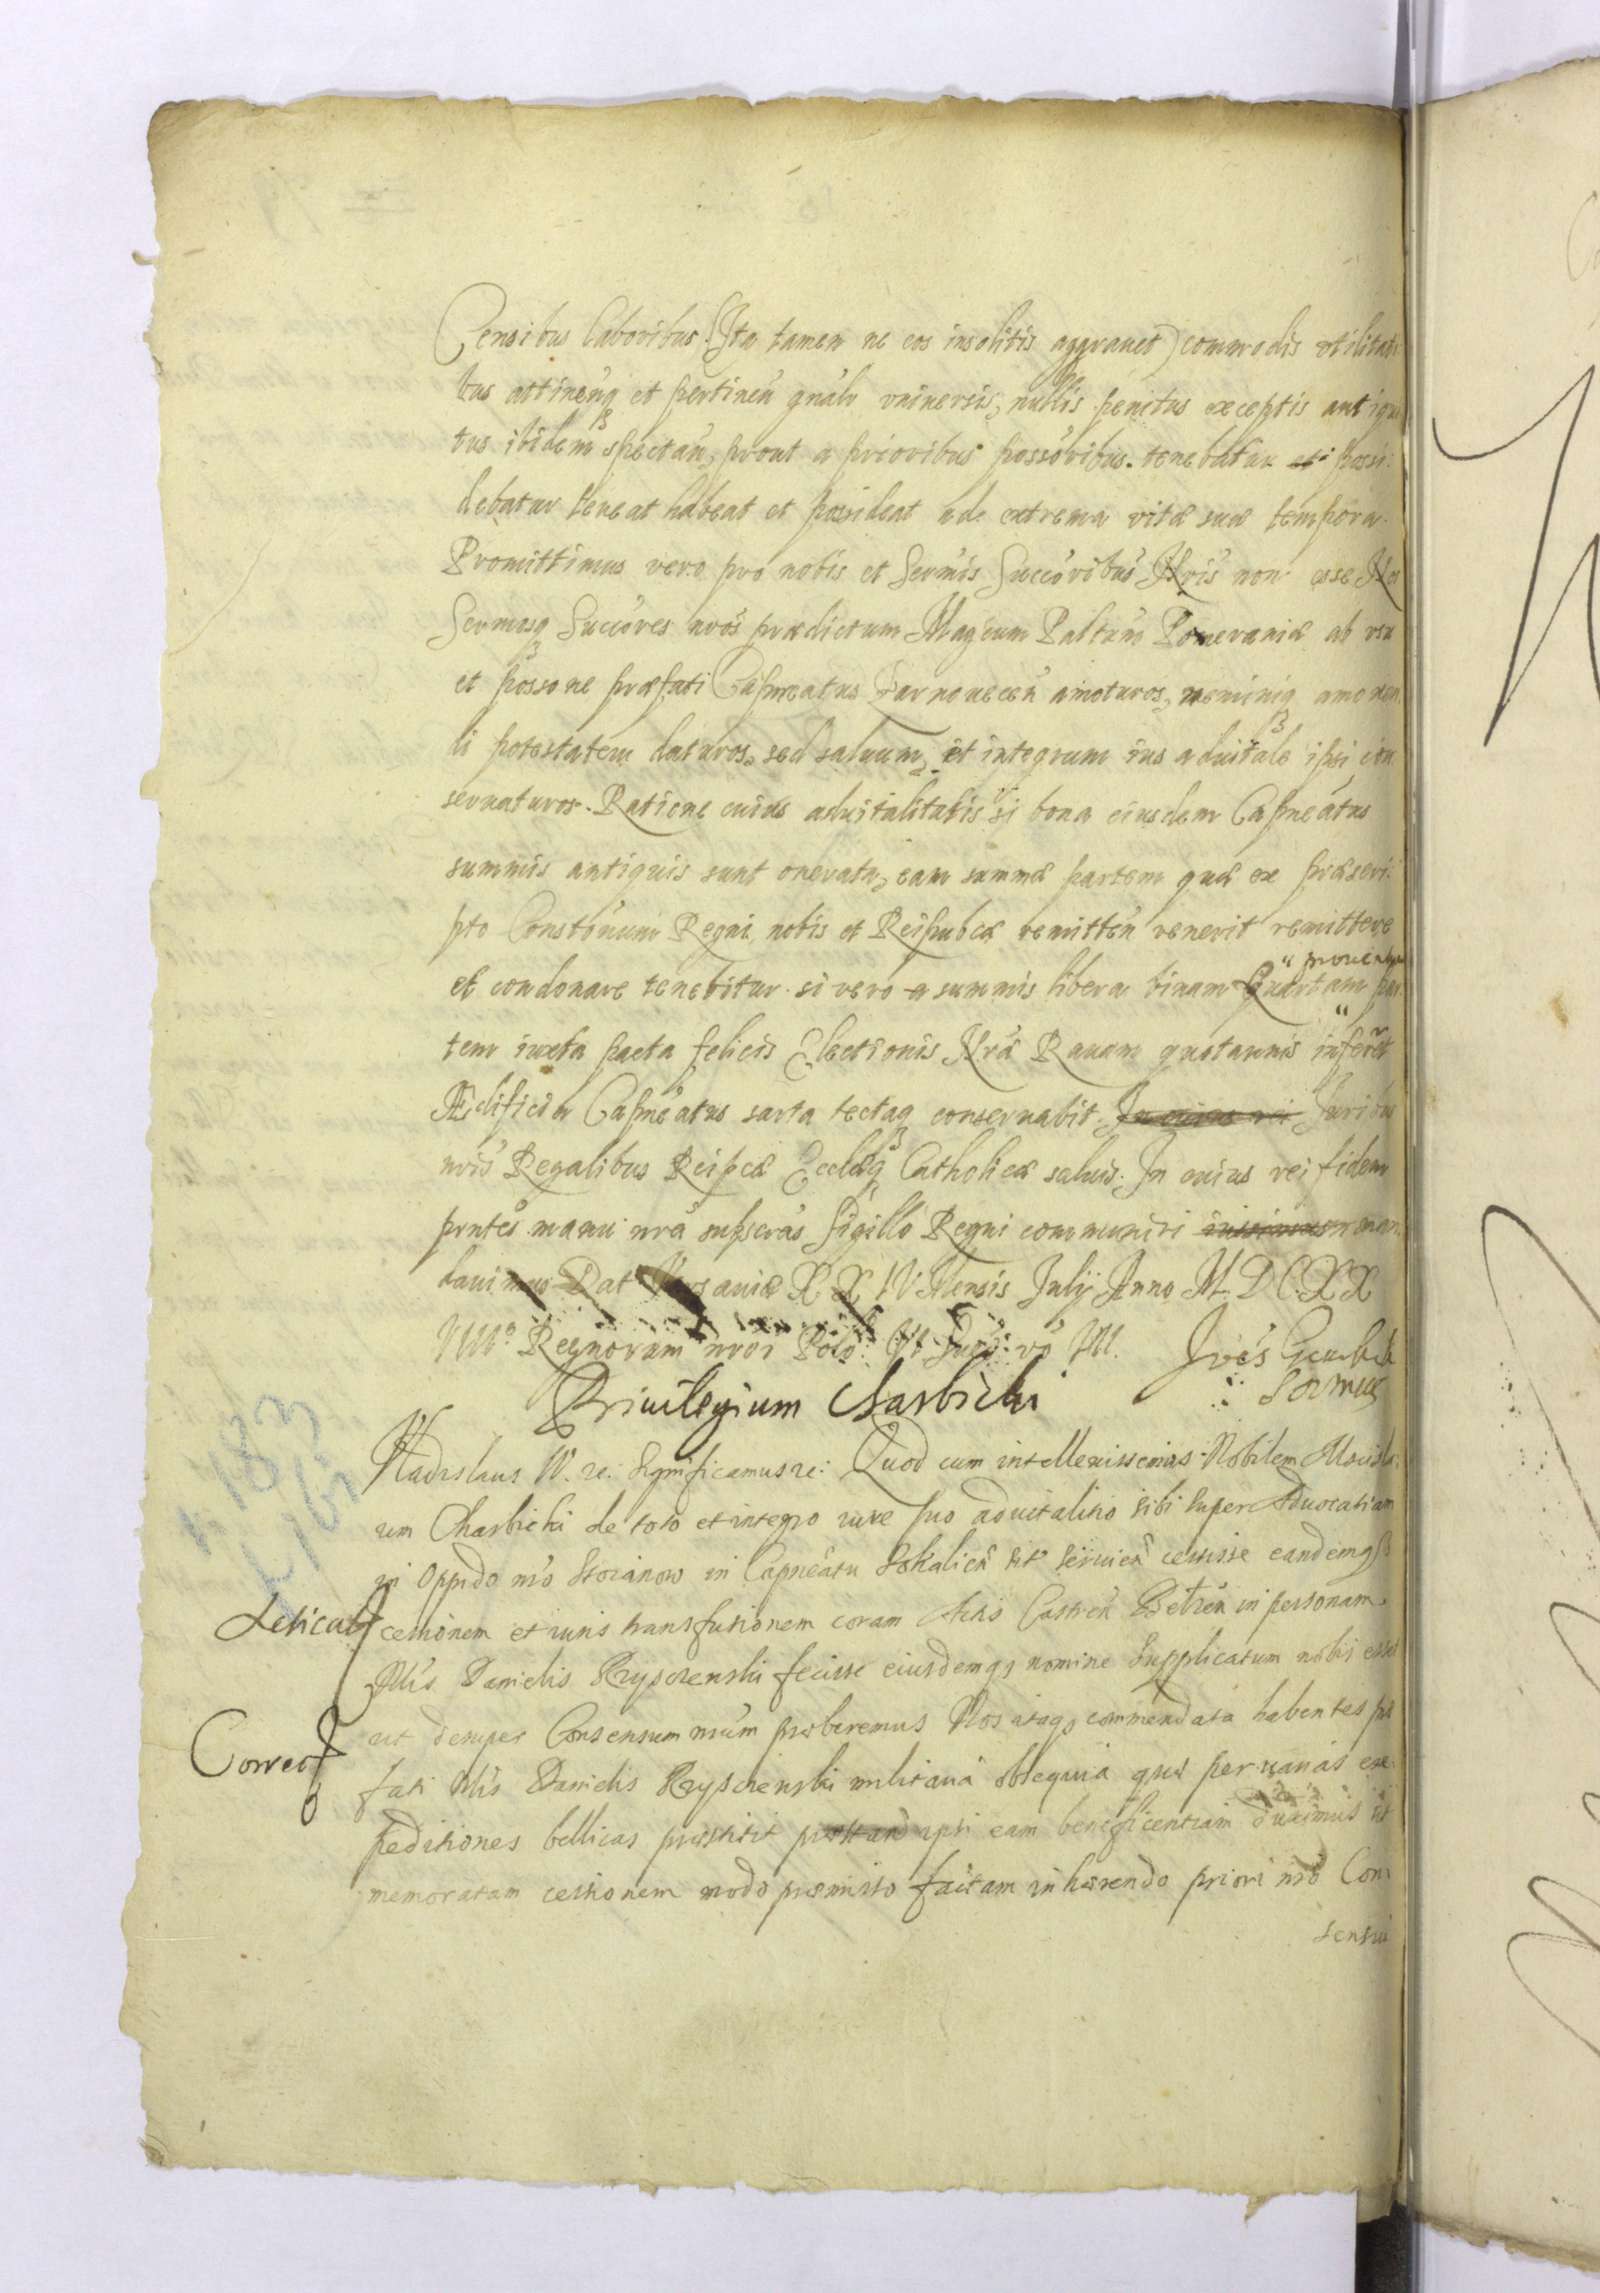 Censibus laboribus (Ita tamen ne eos insolitis aggrauet) commodis vtilitati
bus attineńq et pertineń gnalr vniuersis, nullis penitus exceptis antiqui
tus ibidem spectań, prout a prioribus possoribus tenebatur et possi:
debatur teneat habeat et possideat ad extrema vitæ suæ tempora.
Promittimus vero pro nobis et Sermis Succoribus Nris non esse Nos
Sermosq Succores nros prædictum Magcum Paltum Pomeraniæ ab vsu
et possone præfati Capneatus Tarnouecen amoturos, neminiq amouen
di potestatem daturos, sed saluum, et integrum ius aduitale ipsi con
seruaturos. Ratione cuius aduitalitatis si bona eiusdem Capneatus
summis antiquis sunt onerata, eam summæ partem quæ ex præscri:
pto Constonum Regni nobis et Reipubcæ remitten venerit remittere
et condonare tenebitur. si vero a summis libera binam Quartam par
" prouentuum
tem iuxta pacta felicis Electionis Nræ Rauam quotannis inferet
Ædificia Capneatus sarta tectaq conseruabit. In cuius rei Juribus
nris Regalibus Reipcæ Ecclæq Catholicæ saluis. In cuius rei fidem
pntes manu nra subscras Sigillo Regni communiri mandauimus
Dat Varsauiæ XXIV Mensis Julij Anno M.D.C.XX
VIIIo Regnorum nror Polo: VI Suec: vo VII.
Privilegium Charbicki
Vladislaus IV. re: Significamus re: Quod cum intellexissemus Nobilem Mscisla
um Charbicki de toto et integro iure suo aduitalitio sibi super Aduocatiam
in Oppido nro Stoianow in Capneatu Sokalien sit seruien cessisse eandemqs
cessionem et iuris transfusionem coram Actis Castren Betzen in personam
Nlis Danielis Ryscienski fecisse eiusdemqs nomine Supplicatum nobis esset
ut desuper Consensum nrum præberemus Nos itaqs commendata habentes præ
fati Nlis Danielis Rysczienski militaria obsequia quæ per varias ex
peditiones bellicas præstitit præstand ipsi eam beneficentiam duximus ut
memoratam cessionem modo præmisso factam inhærendo priori nro Con
sensui
Correct